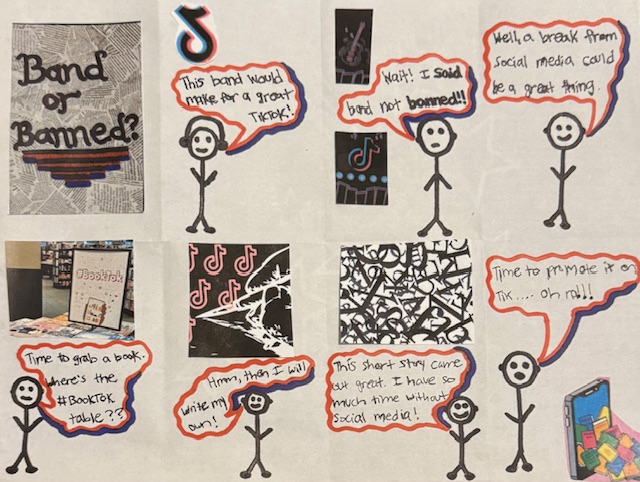 Band
or
Banned?
This band would
make for a great
TikTok!
Wait! I said
band not banned!!
Well, a break from
social media could
be a great thing.
#BookTok
Time to grab a book.
Where's the
#BookTok
table??
Hmm, then I will
write my
own!
This short story came
out great. I have so
much time without
social media!
Time to promote it on
Tik.... oh no!!!